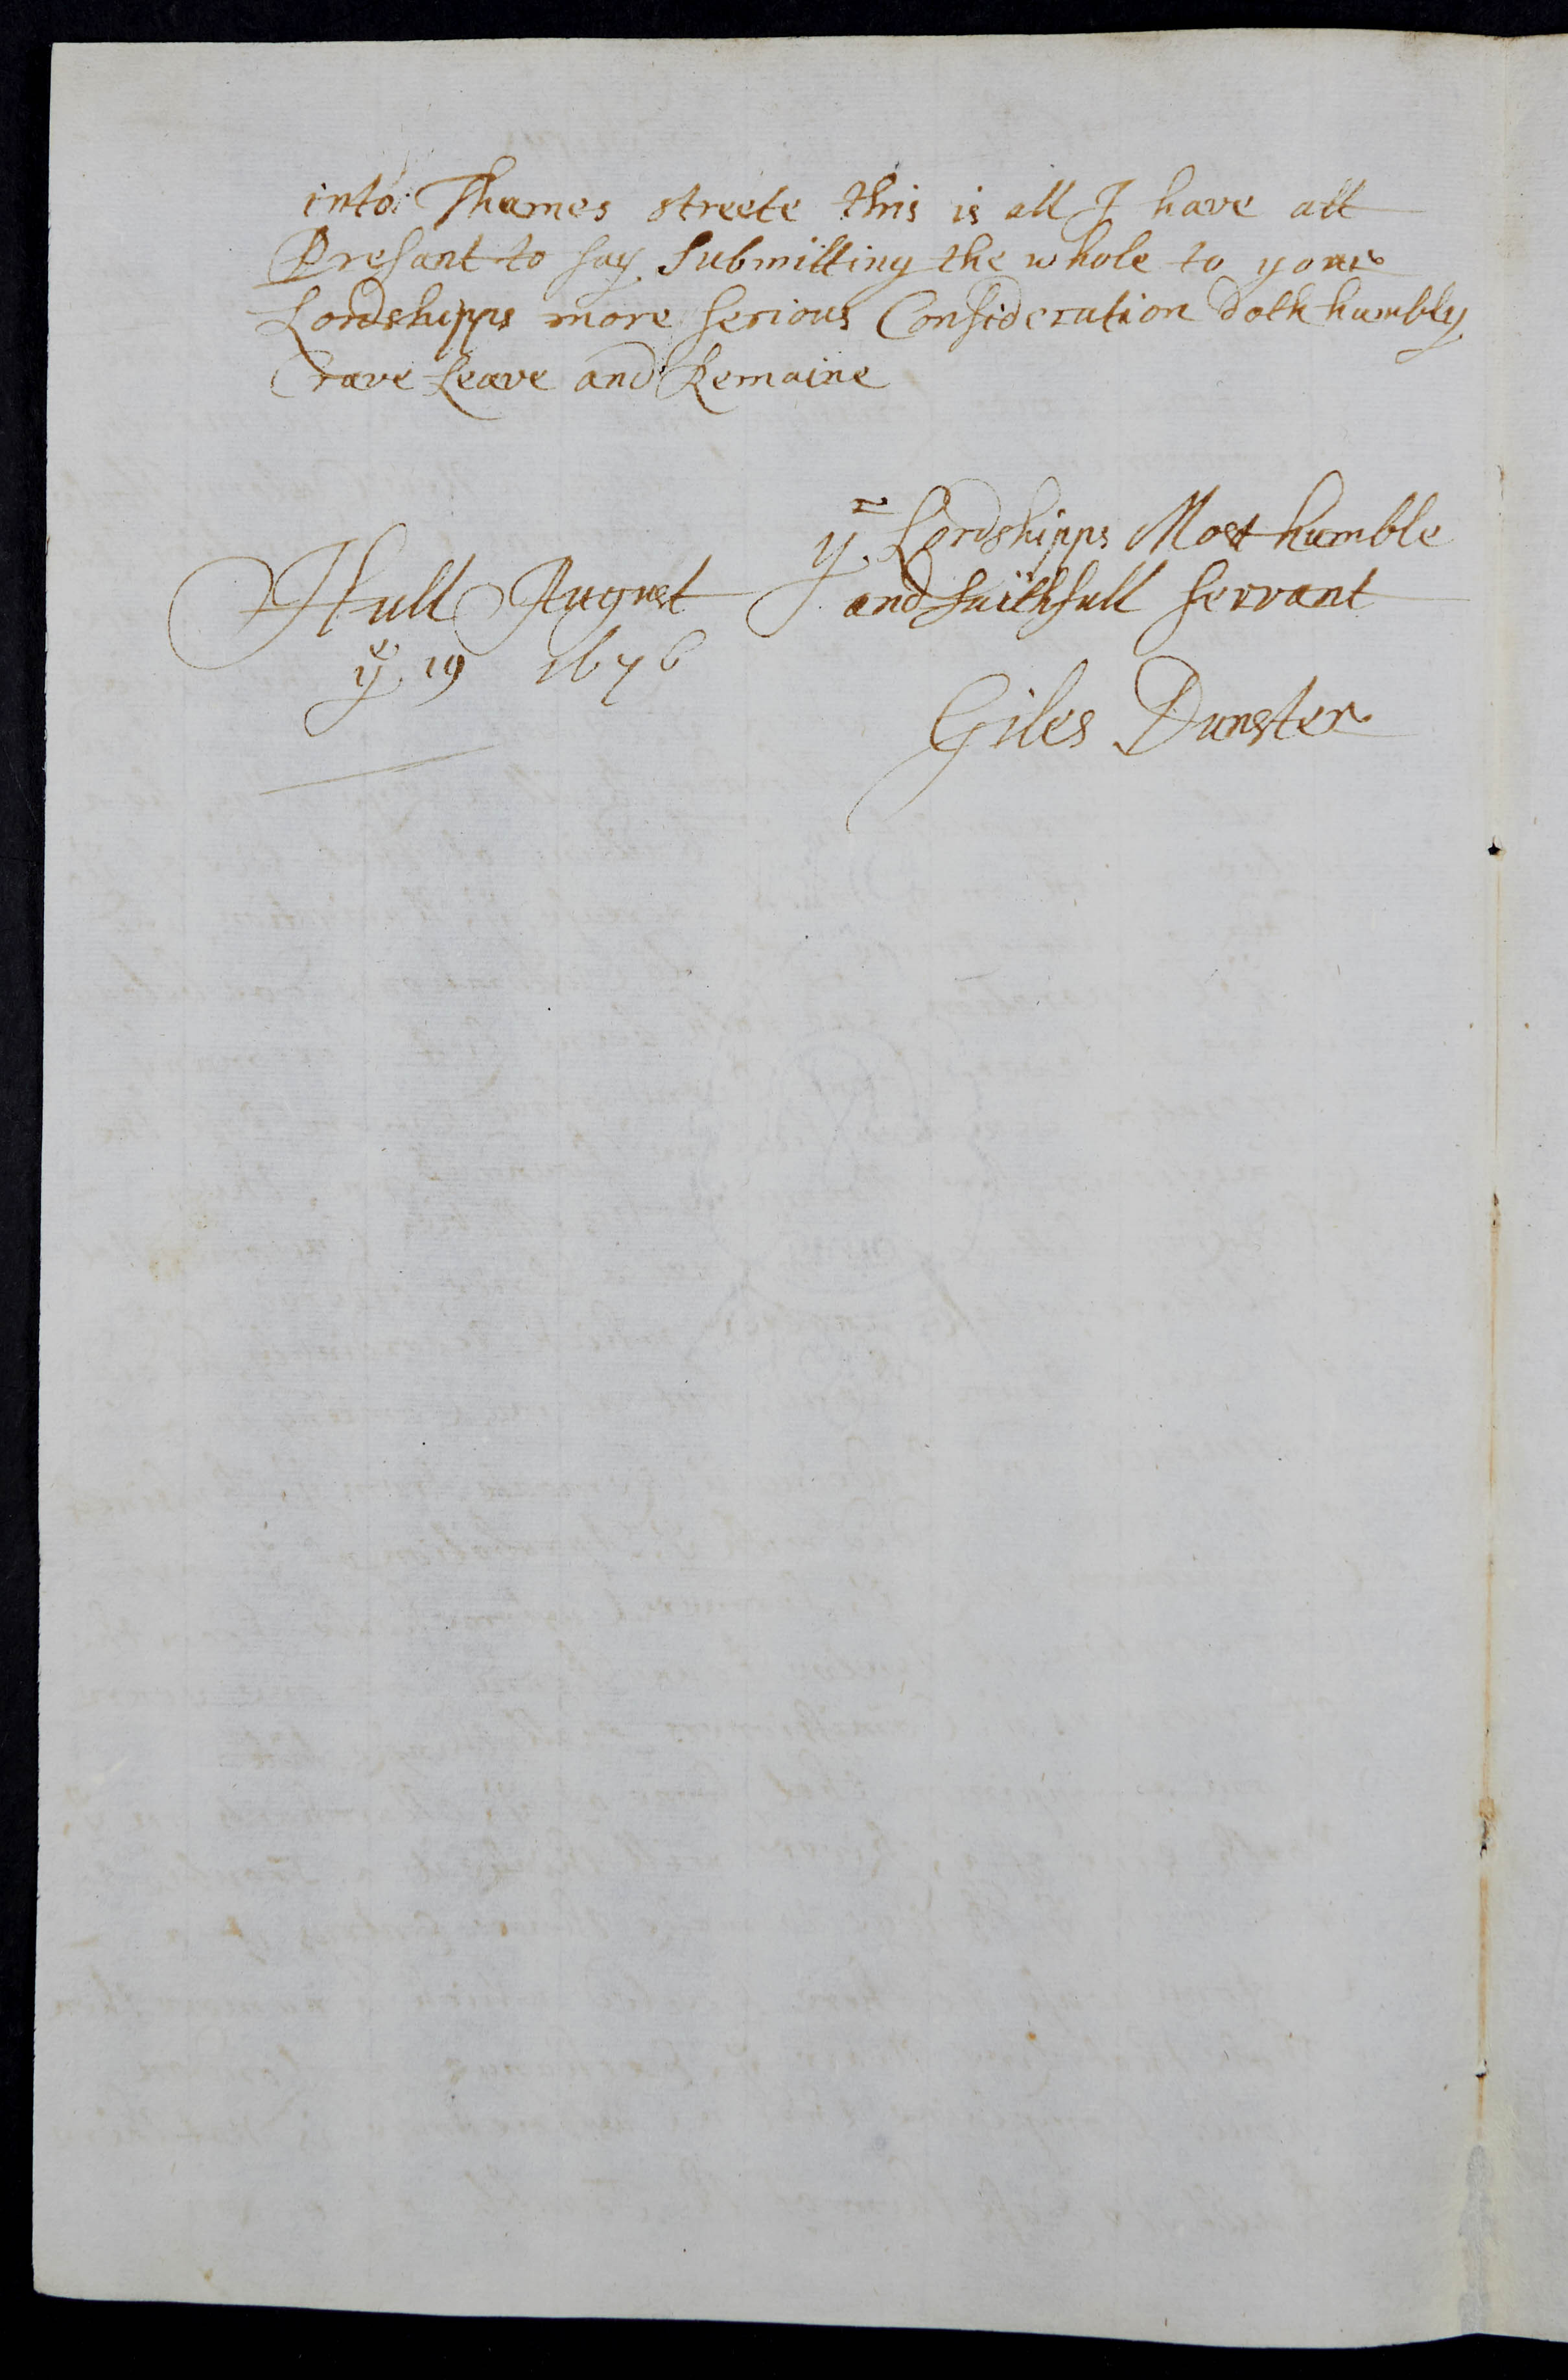 into Thames streete this is all I have att
Presant to say Submitting the whole to youre
Lordshipps more serious Consideration doth humbly
Crave Leave and Remaine
yr Lordshipps Most humble
and faithfull servant
Hull August
ye 19 1676
Giles Dunster